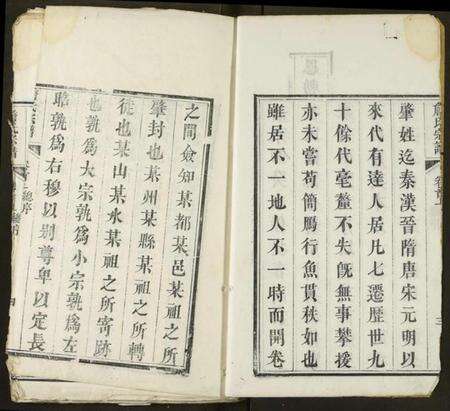 肇姓迄秦漢晉隋唐宋元明以
來代有達人居凡七遷歷世九
十餘代毫釐不失旣無事攀援
亦未嘗苟簡鴈行魚貫秩如也
雖居不一地人不一時而開卷
之間僉知某都某邑某祖之所
肇封也某州某縣某祖之所轉
徙也某山某水某祖之所寄跡
也孰為大宗孰為小宗孰為左
昭孰為右穆以別尊卑以定長
氏宗譜
總序